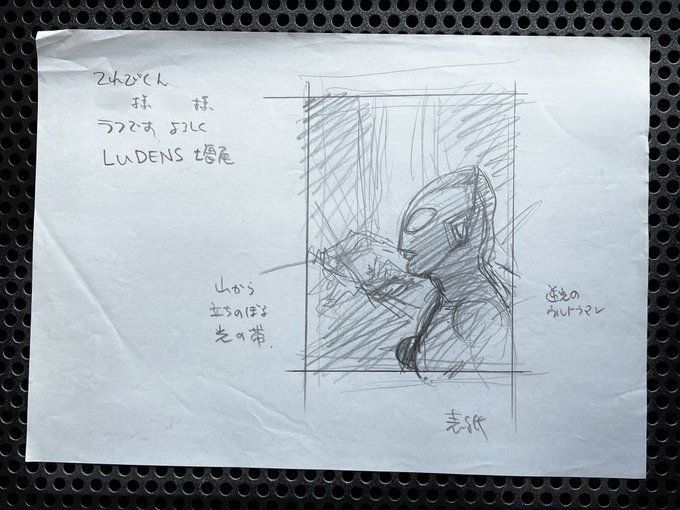 てれびくん
様 様
ラフです よろしく
LUDENS 増尾
山から
立ちのぼる
光の帯
逆光の
ウルトラマン
表紙